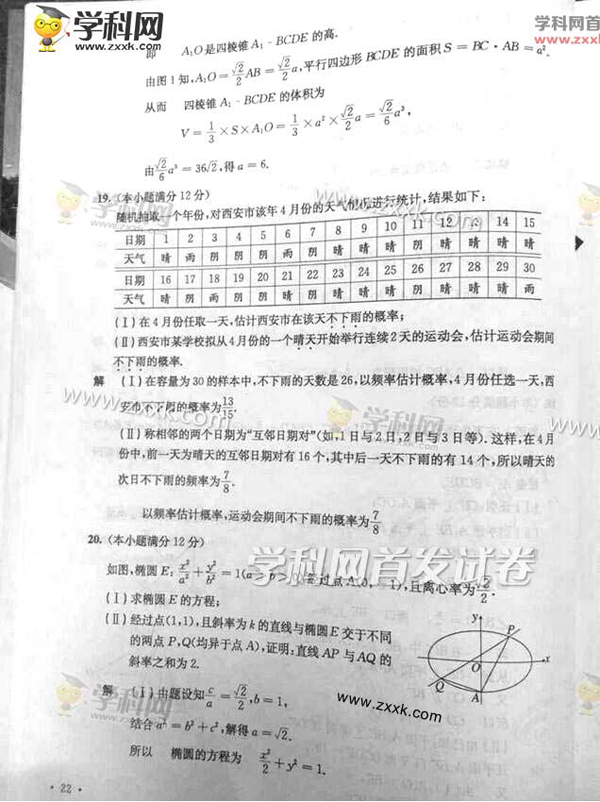 学科网
www.zxxk.com
学科网首
www.zxx
即 A₁O是四棱锥 A₁-BCDE 的高.
由图1知,A₁O=√2/2AB=√2/2a,平行四边形 BCDE 的面积 S=BC·AB=a².
从而 四棱锥 A₁-BCDE 的体积为
V=1/3×S×A₁O=1/3×a²×√2/2a=√2/6a³,
由√2/6a³=36√2,得 a=6.
19.(本小题满分12分)
随机抽取一个年份,对西安市该年4月份的天气情况进行统计,结果如下:
日期 1 2 3 4 5 6 7 8 9 10 11 12 13 14 15
天气 晴 雨 阴 阴 阴 雨 阴 晴 晴 晴 阴 晴 晴 晴 晴
日期 16 17 18 19 20 21 22 23 24 25 26 27 28 29 30
天气 晴 阴 雨 阴 阴 晴 阴 晴 晴 晴 阴 晴 晴 晴 雨
(Ⅰ)在4月份任取一天,估计西安市在该天不下雨的概率;
(Ⅱ)西安市某学校拟从4月份的一个晴天开始举行连续2天的运动会,估计运动会期间
不下雨的概率.
解 (Ⅰ)在容量为30的样本中,不下雨的天数是26,以频率估计概率,4月份任选一天,西
安市不下雨的概率为13/15.
(Ⅱ)称相邻的两个日期为“互邻日期对”(如,1日与2日,2日与3日等).这样,在4月
份中,前一天为晴天的互邻日期对有16个,其中后一天不下雨的有14个,所以晴天的
次日不下雨的频率为7/8.
以频率估计概率,运动会期间不下雨的概率为7/8
20.(本小题满分12分)
学科网首发试卷
如图,椭圆E:x²/a²+y²/b²=1(a>b>0)经过点A(0,-1),且离心率为√2/2.
(Ⅰ)求椭圆E的方程;
(Ⅱ)经过点(1,1),且斜率为k的直线与椭圆E交于不同
的两点P,Q(均异于点A),证明:直线AP与AQ的
斜率之和为2.
y
P
O
x
Q
A
解 (Ⅰ)由题设知c/a=√2/2,b=1,
结合a²=b²+c²,解得a=√2.
所以 椭圆的方程为 x²/2+y²=1.
www.zxxk.com
·22·